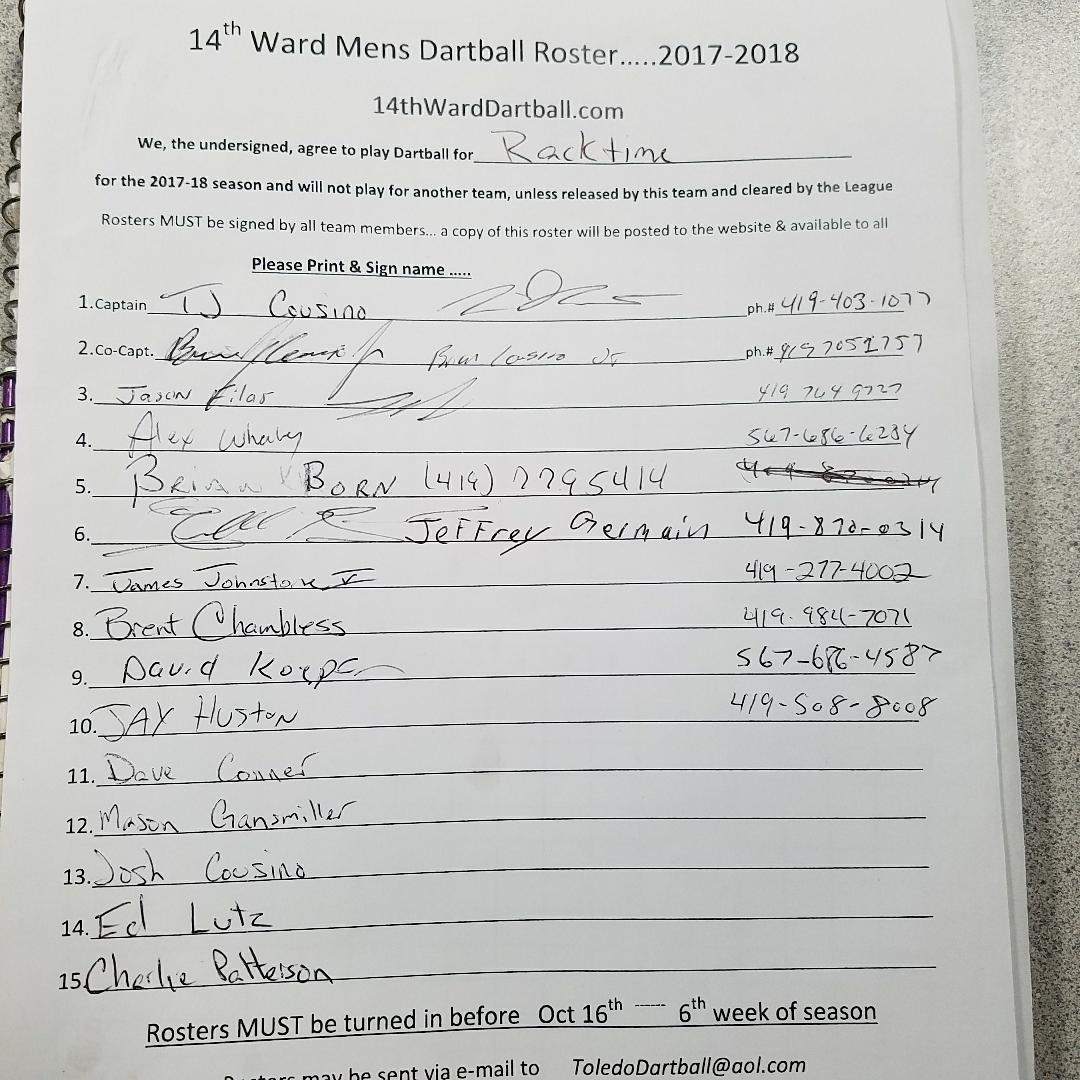 14th Ward Mens Dartball Roster.....2017-2018
14thWardDartball.com
We, the undersigned, agree to play Dartball for Racktime
for the 2017-18 season and will not play for another team, unless released by this team and cleared by the League
Rosters MUST be signed by all team members... a copy of this roster will be posted to the website & available to all
Please Print & Sign name .....
1.Captain TJ Cousino ph.# 419-403-1077
2.Co-Capt. Jr ph.# 419 7051757
3. Jason Filas 419 764 9727
4. Alex Whaley 567-686-6284
5. Brian Born (419) 7795414
6. Jeffrey Germain 419-870-0314
7. James Johnstone V 419-277-4002
8. Brent Chambless 419-984-7071
9. David 567-686-4587
10. JAY Huston 419-508-8008
11. Dave Conner
12. Mason Gansmiller
13. Josh Cousino
14. Ed Lutz
15. Charlie Patterson
Rosters MUST be turned in before Oct 16th ----- 6th week of season
Rosters may be sent via e-mail to ToledoDartball@aol.com